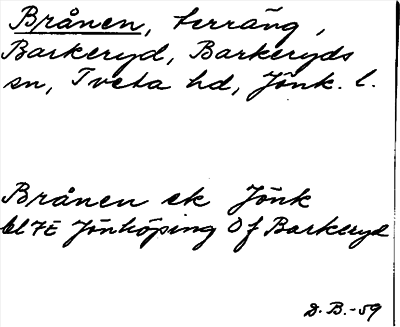 Brånen, terräng,
Barkeryd, Barkeryds
sn, Tveta hd, Jönk. l.
Brånen ek Jönk
bl 7E Jönköping Of Barkeryd
D. B. - 59